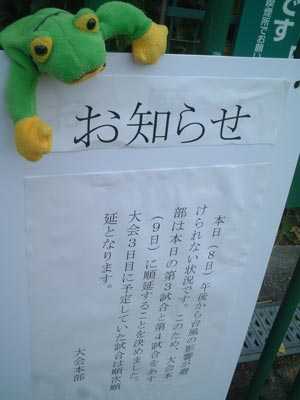 お知らせ
本日（8日）午後から台風の影響が避
けられない状況です。このため、大会本
部は本日の第3試合と第4試合をあす
（9日）に順延することを決めました。
大会3日目に予定していた試合は順次順
延となります。
大会本部
です
喫煙所でお願い